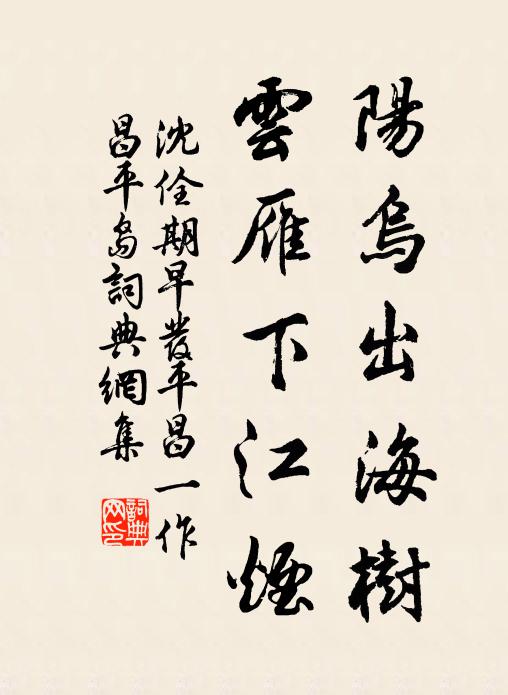 陽烏出海樹
雲雁下江煙
沈佺期早發平昌一作
昌平島詞典網集
詞典
网印